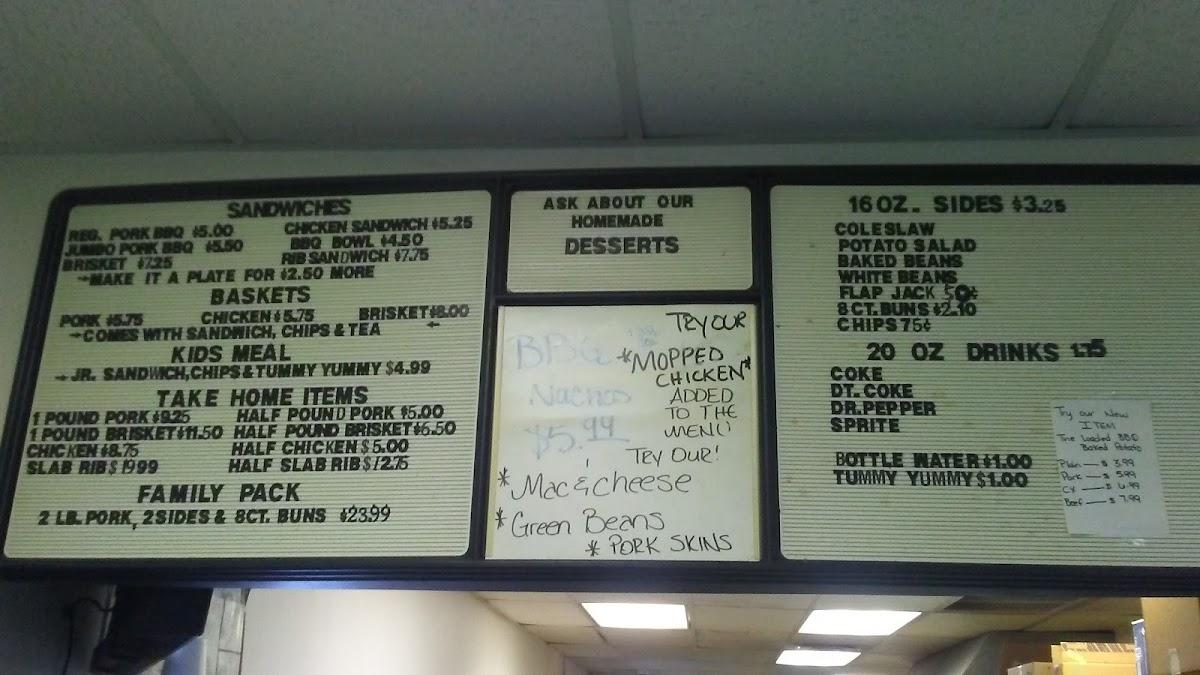 SANDWICHES
REG. PORK BBQ $5.00 CHICKEN SANDWICH $5.25
JUMBO PORK BBQ $5.50 BBQ BOWL $4.50
BRISKET $7.25 RIB SANDWICH $7.75
→MAKE IT A PLATE FOR $2.50 MORE
BASKETS
PORK $5.75 CHICKEN $5.75 BRISKET $8.00
→COMES WITH SANDWICH, CHIPS & TEA ←
KIDS MEAL
→ JR. SANDWICH, CHIPS & TUMMY YUMMY $4.99
TAKE HOME ITEMS
1 POUND PORK $9.25 HALF POUND PORK $5.00
1 POUND BRISKET $11.50 HALF POUND BRISKET $6.50
CHICKEN $8.75 HALF CHICKEN $5.00
SLAB RIB $19.99 HALF SLAB RIB $12.75
FAMILY PACK
2 LB. PORK, 2 SIDES & 8CT. BUNS $23.99
ASK ABOUT OUR
HOMEMADE
DESSERTS
BBQ
Nachos
$5.99
TRY OUR
*MOPPED
CHICKEN*
ADDED
TO THE
MENU
TRY OUR!
* Mac & cheese
* Green Beans
* PORK SKINS
16 OZ. SIDES $3.25
COLESLAW
POTATO SALAD
BAKED BEANS
WHITE BEANS
FLAP JACK 50¢
8 CT. BUNS $2.10
CHIPS 75¢
20 OZ DRINKS 1.75
COKE
DT. COKE
DR. PEPPER
SPRITE
BOTTLE WATER $1.00
TUMMY YUMMY $1.00
Try our New
ITEM
The Loaded BBQ
Baked Potato
Plain — $ 3.99
Pork — $ 5.99
CX — $ 6.99
Beef — $ 7.99